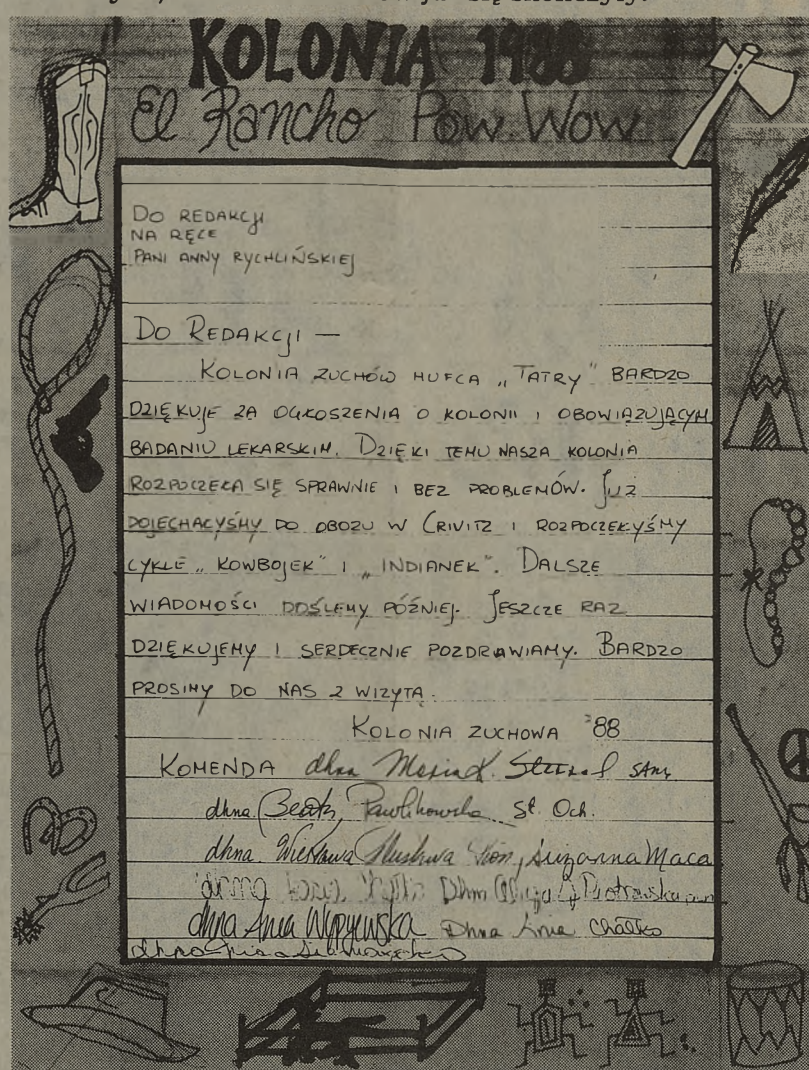 KOLONIA 1988
El Rancho Pow Wow
DO REDAKCJI
NA RĘCE
PANI ANNY RYCHLIŃSKIEJ
DO REDAKCJI —
KOLONIA ZUCHÓW HUFCA „TATRY” BARDZO
DZIĘKUJE ZA OGŁOSZENIA O KOLONII I OBOWIĄZUJĄCYM
BADANIU LEKARSKIM. DZIĘKI TEMU NASZA KOLONIA
ROZPOCZĘŁA SIĘ SPRAWNIE I BEZ PROBLEMÓW. JUŻ
DOJECHAŁYŚMY DO OBOZU W CRIVITZ I ROZPOCZĘŁYŚMY
CYKLE „KOWBOJEK” I „INDIANEK”. DALSZE
WIADOMOŚCI DOŚLEMY PÓŹNIEJ. JESZCZE RAZ
DZIĘKUJEMY I SERDECZNIE POZDRAWIAMY. BARDZO
PROSIMY DO NAS Z WIZYTĄ.
KOLONIA ZUCHOWA '88
KOMENDA dhna Maria K.
dhna Beata Pawlikowska St. Och.
dhna Wiesława Suzanna Maca
Dhna
dhna Ania Wypyewska Dhna Ania Chałko
dhna